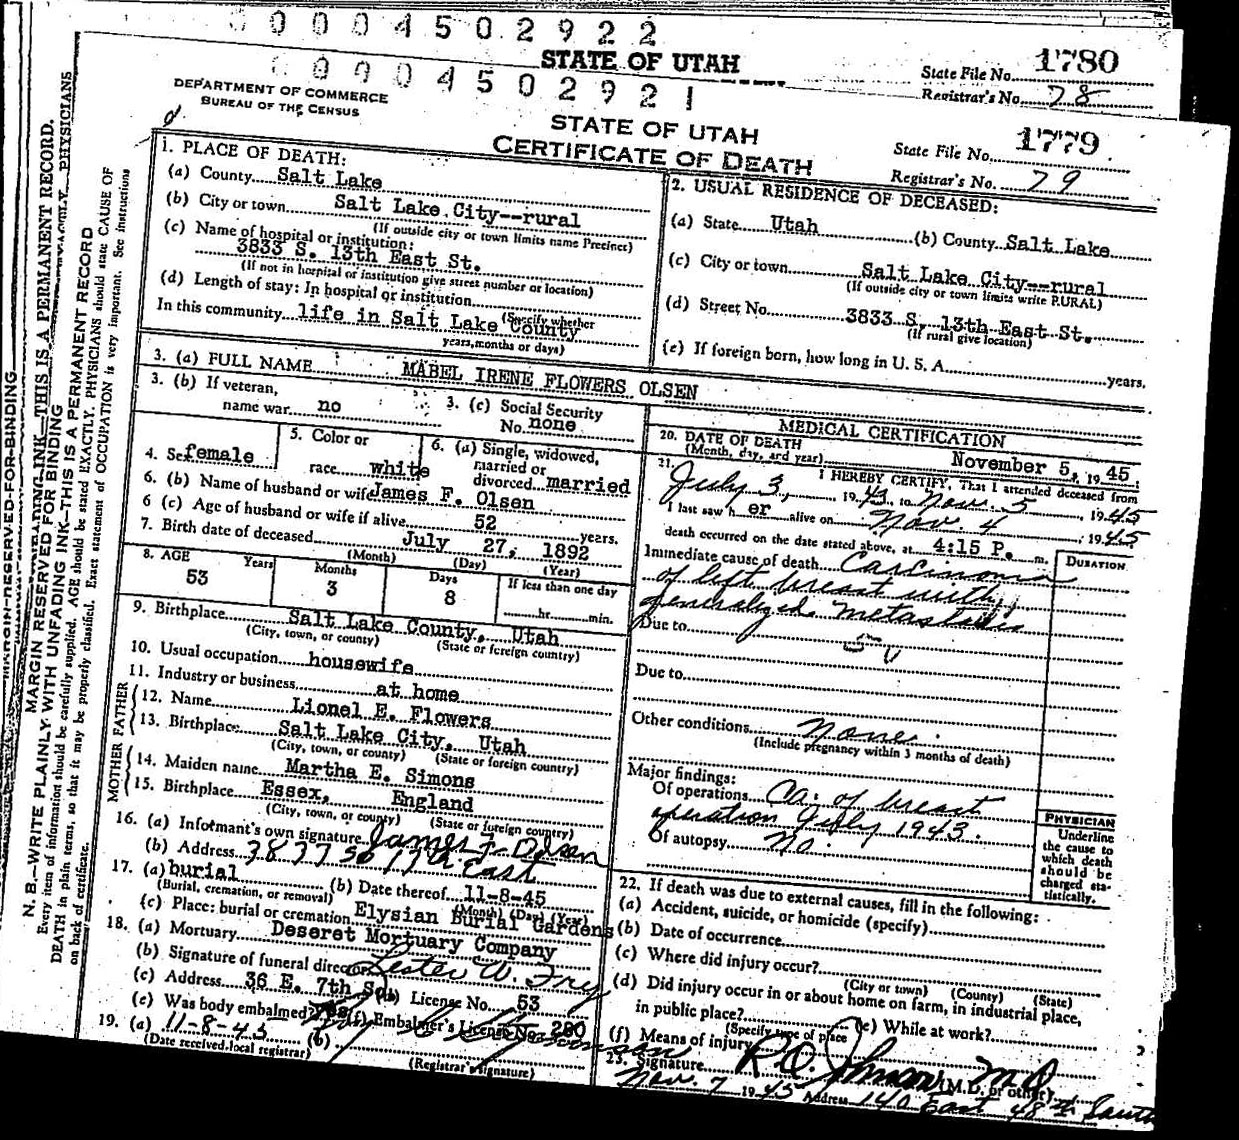 0 0 0 0 4 5 0 2 9 2 2
STATE OF UTAH
State File No. 1780
Registrar's No. 78
0 0 0 0 4 5 0 2 9 2 1
DEPARTMENT OF COMMERCE
BUREAU OF THE CENSUS
STATE OF UTAH
CERTIFICATE OF DEATH
State File No. 1779
Registrar's No. 79
MARGIN RESERVED FOR BINDING
N. B.—WRITE PLAINLY WITH UNFADING INK—THIS IS A PERMANENT RECORD
Every item of information should be carefully supplied. AGE should be stated EXACTLY. PHYSICIANS should state CAUSE OF
DEATH in plain terms, so that it may be properly classified. Exact statement of OCCUPATION is very important. See instructions
on back of certificate.
1. PLACE OF DEATH:
(a) County Salt Lake
(b) City or town Salt Lake City--rural
(If outside city or town limits name Precinct)
(c) Name of hospital or institution:
3833 S. 13th East St.
(If not in hospital or institution give street number or location)
(d) Length of stay: In hospital or institution
(Specify whether
In this community life in Salt Lake County
years, months or days)
2. USUAL RESIDENCE OF DECEASED:
(a) State Utah (b) County Salt Lake
(c) City or town Salt Lake City--rural
(If outside city or town limits write RURAL)
(d) Street No. 3833 S. 13th East St.
(If rural give location)
(e) If foreign born, how long in U. S. A. years.
3. (a) FULL NAME MABEL IRENE FLOWERS OLSEN
3. (b) If veteran,
name war no
3. (c) Social Security
No. none
4. Sex female
5. Color or
race white
6. (a) Single, widowed,
married or
divorced married
6. (b) Name of husband or wife James F. Olsen
6 (c) Age of husband or wife if alive 52 years.
7. Birth date of deceased July 27, 1892
(Month) (Day) (Year)
8. AGE Years Months Days If less than one day
53 3 8 hr. min.
9. Birthplace Salt Lake County, Utah
(City, town, or county) (State or foreign country)
10. Usual occupation housewife
11. Industry or business at home
FATHER
12. Name Lionel E. Flowers
13. Birthplace Salt Lake City, Utah
(City, town, or county) (State or foreign country)
MOTHER
14. Maiden name Martha E. Simons
15. Birthplace Essex, England
(City, town, or county) (State or foreign country)
16. (a) Informant's own signature James F. Olsen
(b) Address 3833 So 13th East
17. (a) burial (b) Date thereof 11-8-45
(Burial, cremation, or removal) (Month) (Day) (Year)
(c) Place: burial or cremation Elysian Burial Gardens
18. (a) Mortuary Deseret Mortuary Company
(b) Signature of funeral director Lester W. Frey
(c) Address 36 E. 7th So. (d) License No. 53
(e) Was body embalmed? yes (f) Embalmer's License No. 280
19. (a) 11-8-45 (b)
(Date received local registrar) (Registrar's signature)
MEDICAL CERTIFICATION
20. DATE OF DEATH
(Month, day, and year) November 5, 1945
21. I HEREBY CERTIFY, That I attended deceased from
July 3, 1943 to Nov. 5, 1945
I last saw her alive on Nov. 4, 1945
death occurred on the date stated above, at 4:15 P. m.
DURATION
Immediate cause of death Carcinoma
of left breast with
generalized metastasis
Due to
Due to
Other conditions None.
(Include pregnancy within 3 months of death)
Major findings:
Of operations Ca. of breast
operation July 1943.
Of autopsy No.
PHYSICIAN
Underline
the cause to
which death
should be
charged sta-
tistically.
22. If death was due to external causes, fill in the following:
(a) Accident, suicide, or homicide (specify)
(b) Date of occurrence
(c) Where did injury occur?
(City or town) (County) (State)
(d) Did injury occur in or about home on farm, in industrial place,
in public place?
(Specify type of place) (e) While at work?
(f) Means of injury
23. Signature R. O. Johnson M D (M.D. or other)
Nov. 7 1945 Address 140 East 48th South